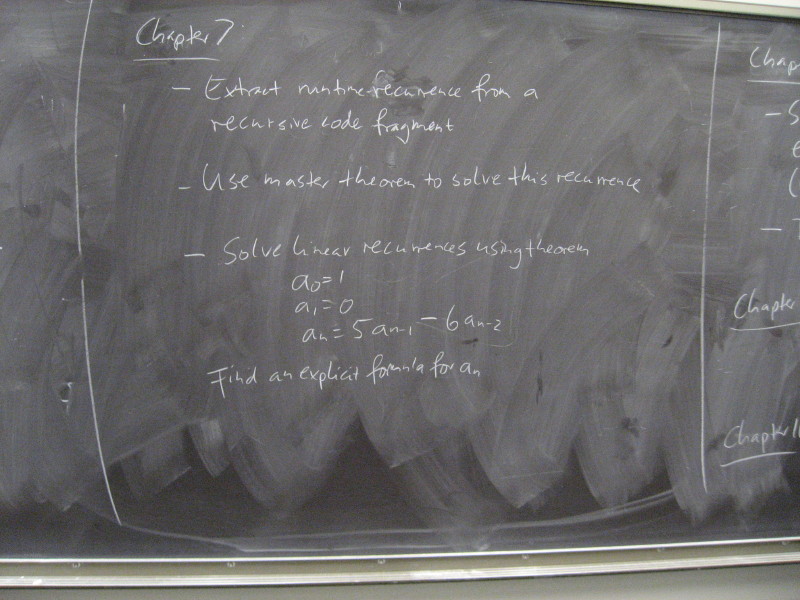 Chapter 7
- Extract runtime recurrence from a
recursive code fragment
- Use master theorem to solve this recurrence
- Solve linear recurrences using theorem
a₀=1
a₁=0
aₙ=5aₙ₋₁-6aₙ₋₂
Find an explicit formula for aₙ
Chap
- S
e
(
- T
Chapter
Chapter 11